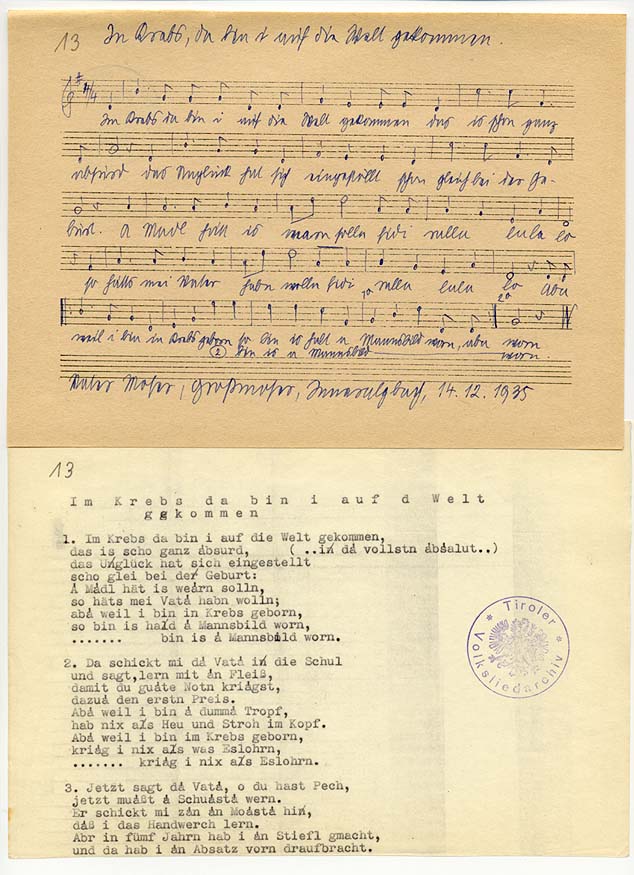 13 Im Krebs, da bin i auf die Welt gekommen.
4/4
Im Krebs da bin i auf die Welt gekommen das is schon ganz
absurd das Unglück hat sich eingestellt schon gleich bei der Ge-
burt. A Madl hätt is wearn solln fidi rulla lula lo
so hätts mei Vater habn wolln fidi rulla lula lo aba
weil i bin in Krebs geborn so bin is halt a Mannsbild worn, aba worn
② bin is a Mannsbild worn.
Vater Moser, Großmoser, Inneralpbach, 14.12.1935
13
Im Krebs da bin i auf d Welt
ggkommen
1. Im Krebs da bin i auf die Welt gekommen,
das is scho ganz absurd, ( ..in då vollstn åbsalut..)
das Unglück hat sich eingestellt
scho glei bei der Geburt:
A Mådl hät is weårn solln,
so häts mei Vatå habn wolln;
abå weil i bin in Krebs geborn,
so bin is hald å Mannsbild worn,
....... bin is å Mannsbild worn.
2. Da schickt mi då Vatå in die Schul
und sagt,lern mit ån Fleiß,
damit du guåte Notn kriågst,
dazuå den erstn Preis.
Abå weil i bin å dummå Tropf,
hab nix als Heu und Stroh im Kopf.
Abå weil i bin im Krebs geborn,
kriåg i nix als was Eslohrn,
....... kriåg i nix als Eslohrn.
3. Jetzt sagt då Vatå, o du hast Pech,
jetz muåßt å Schuåstå wern.
Er schickt mi zån ån Moåstå hin,
dåß i das Handwerch lern.
Abr in fümf Jahrn hab i ån Stiefl gmacht,
und da hab i ån Absatz vorn draufbracht.
* Tiroler *
Volksliedarchiv